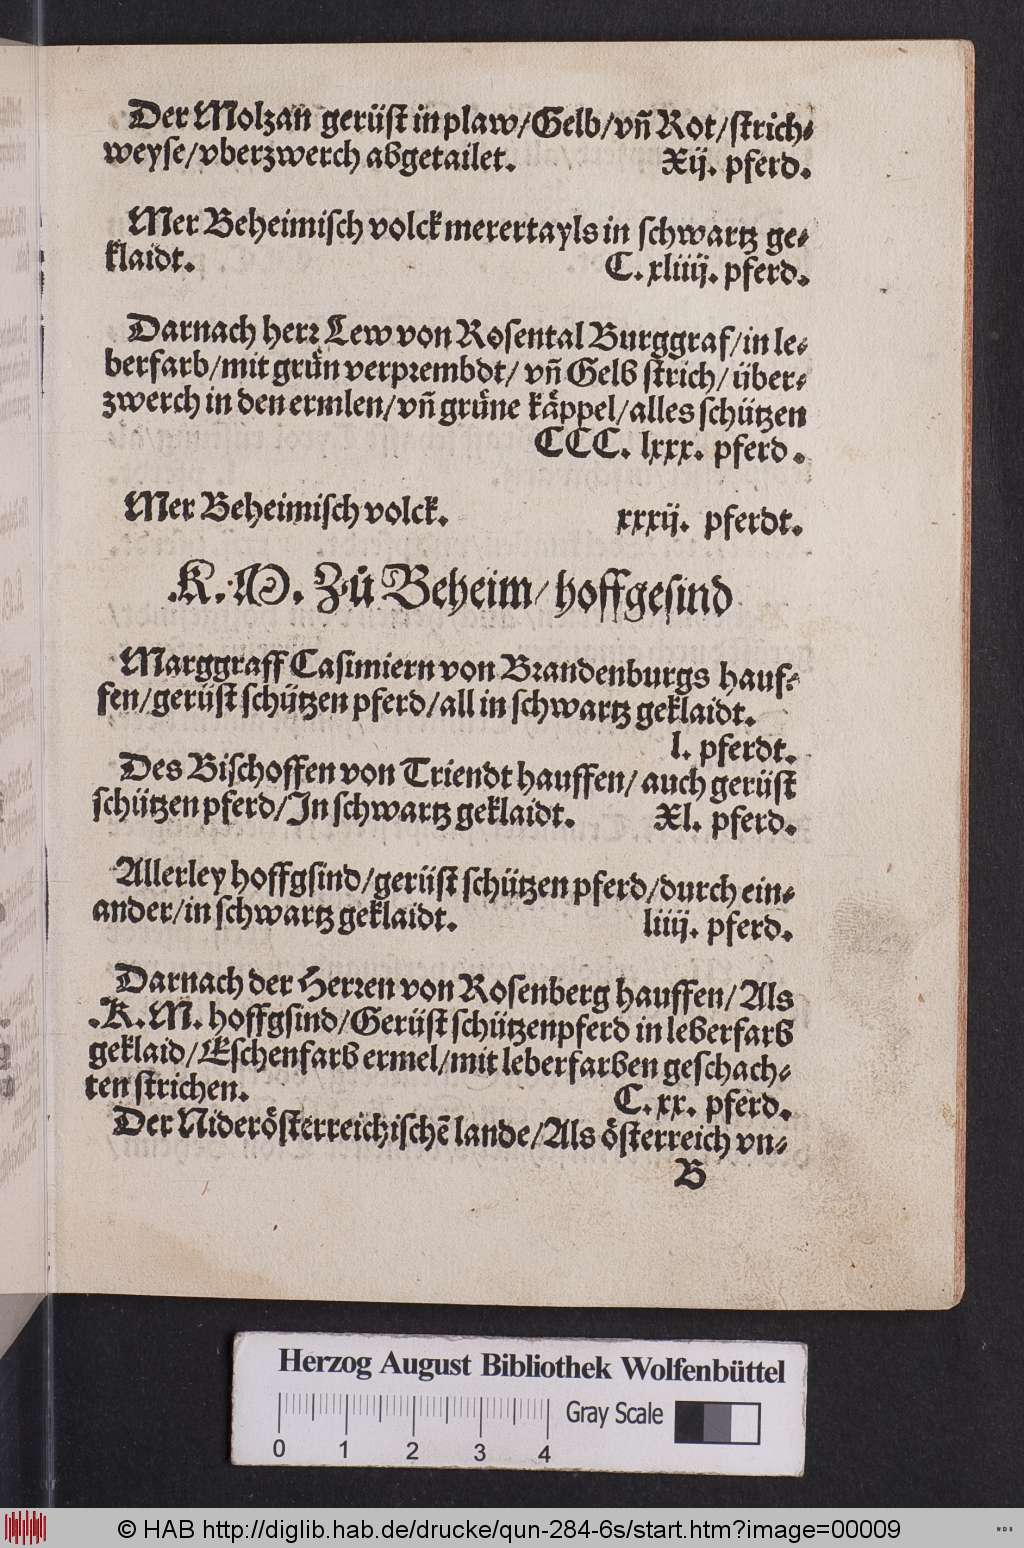 Der Molzan gerüst in plaw/Gelb/vñ Rot/strich⸗
weyse/vberzwerch abgetailet. Xij. pferd.
Mer Beheimisch volck merertayls in schwartz ge⸗
klaidt. C. xliiij. pferd.
Darnach herr Lew von Rosental Burggraf/in le⸗
berfarb/mit grün verprembdt/ vñ Gelb strich/ über⸗
zwerch in den ermlen/vñ grüne käppel/alles schützen
CCC. lxxx. pferd.
Mer Beheimisch volck. xxxij. pferdt.
.K. M. Zů Beheim/ hoffgesind
Marggraff Casimiern von Brandenburgs hauf⸗
fen/gerüst schützen pferd/all in schwartz geklaidt.
l. pferdt.
Des Bischoffen von Triendt hauffen/ auch gerüst
schützen pferd/In schwartz geklaidt. Xl. pferd.
Allerley hoffgsind/gerüst schützen pferd/durch ein⸗
ander/in schwartz geklaidt. liiij. pferd.
Darnach der Herren von Rosenberg hauffen/Als
.K. M. hoffgsind/Gerüst schützenpferd in leberfarb
geklaid/Eschenfarb ermel/mit leberfarben geschach⸗
ten strichen. C. xx. pferd.
Der Niderösterreichischẽ lande/Als österreich vn⸗
B
Herzog August Bibliothek Wolfenbüttel
Gray Scale
0 1 2 3 4
© HAB http://diglib.hab.de/drucke/qun-284-6s/start.htm?image=00009